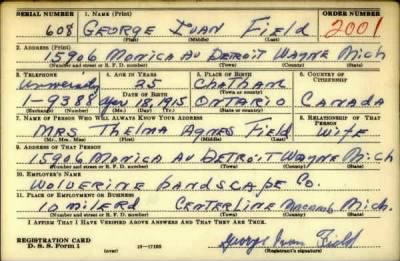 SERIAL NUMBER 1. NAME (Print) ORDER NUMBER
608 GEORGE IVAN FIELD 2001
(First) (Middle) (Last)
2. ADDRESS (Print)
15906 MONICA AV DETROIT WAYNE MICH
(Number and street or R. F. D. number) (Town) (County) (State)
3. TELEPHONE 4. AGE IN YEARS 5. PLACE OF BIRTH 6. COUNTRY OF CITIZENSHIP
University 25 CHATHAM
DATE OF BIRTH (Town or county)
1-9388 18, 1915 ONTARIO CANADA
(Exchange) (Number) (Mo.) (Day) (Yr.) (State or country)
7. NAME OF PERSON WHO WILL ALWAYS KNOW YOUR ADDRESS 8. RELATIONSHIP OF THAT PERSON
MRS. THELMA AGNES FIELD WIFE
(Mr., Mrs., Miss) (First) (Middle) (Last)
9. ADDRESS OF THAT PERSON
15906 MONICA AV DETROIT WAYNE MICH
(Number and street or R. F. D. number) (Town) (County) (State)
10. EMPLOYER'S NAME
WOLVERINE LANDSCAPE CO.
11. PLACE OF EMPLOYMENT OR BUSINESS
10 MILE RD CENTERLINE MACOMB MICH.
(Number and street or R. F. D. number) (Town) (County) (State)
I AFFIRM THAT I HAVE VERIFIED ABOVE ANSWERS AND THAT THEY ARE TRUE.
REGISTRATION CARD
D. S. S. Form 1 (over) George Ivan Field
(Registrant's signature)